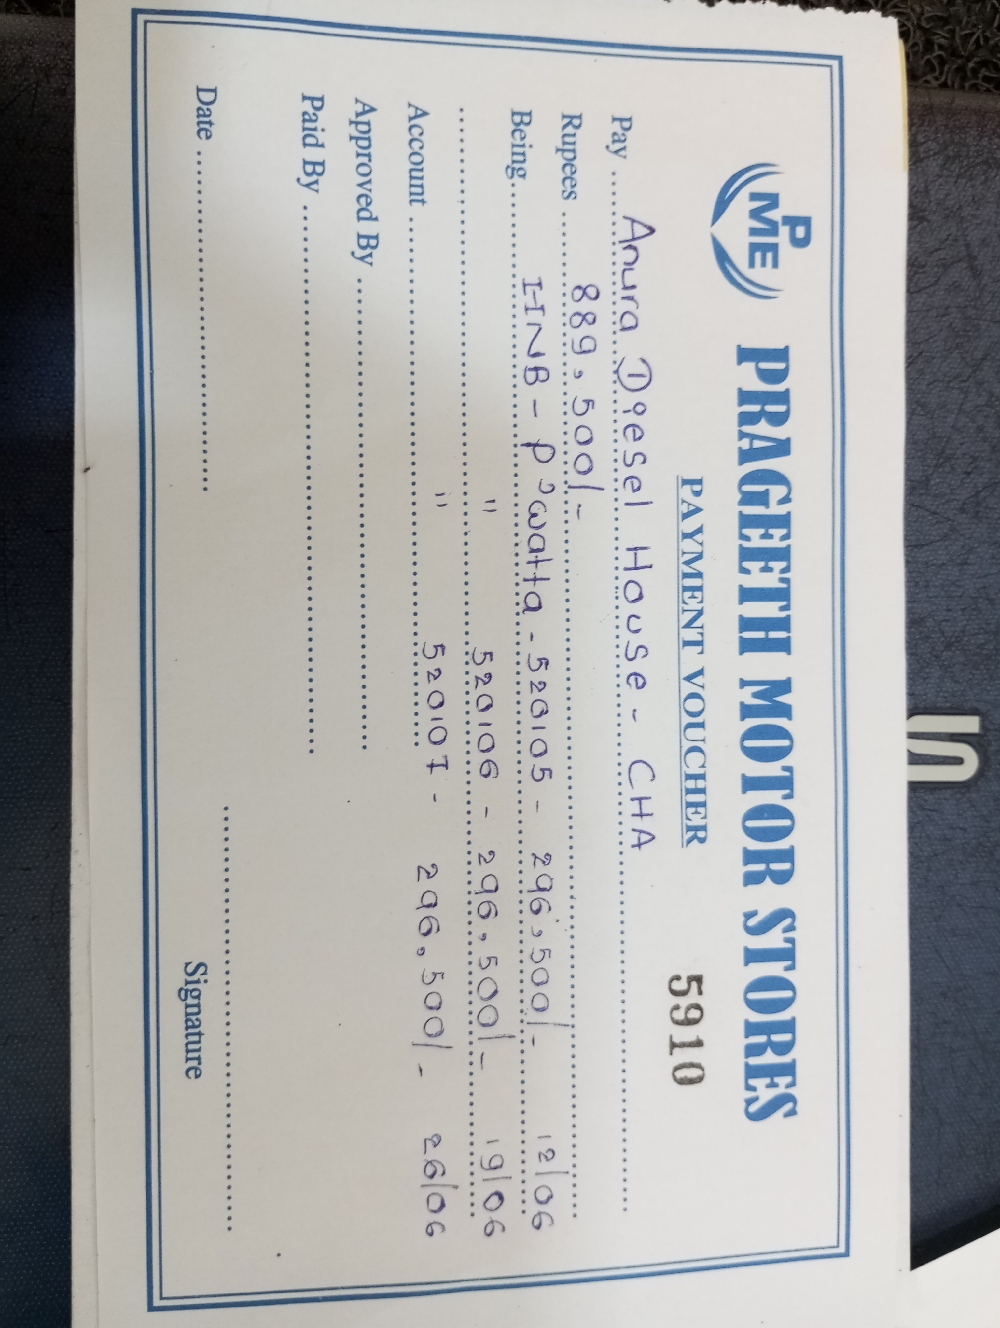 PME PRAGEETH MOTOR STORES
PAYMENT VOUCHER 5910
Pay Anura Diesel House - CHA
Rupees 889,500/-
Being HNB - P'watta - 520105 - 296,500/- 12/06
" 520106 - 296,500/- 19/06
Account " 520107 - 296,500/- 26/06
Approved By
Paid By
Date
Signature